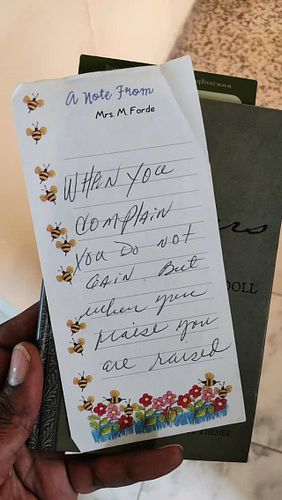 A Note From
Mrs. M. Forde
WHEN YOU
COMPLAIN
YOU DO NOT
GAIN BUT
when you
PRAISE YOU
are raised
DOLL
THEMES